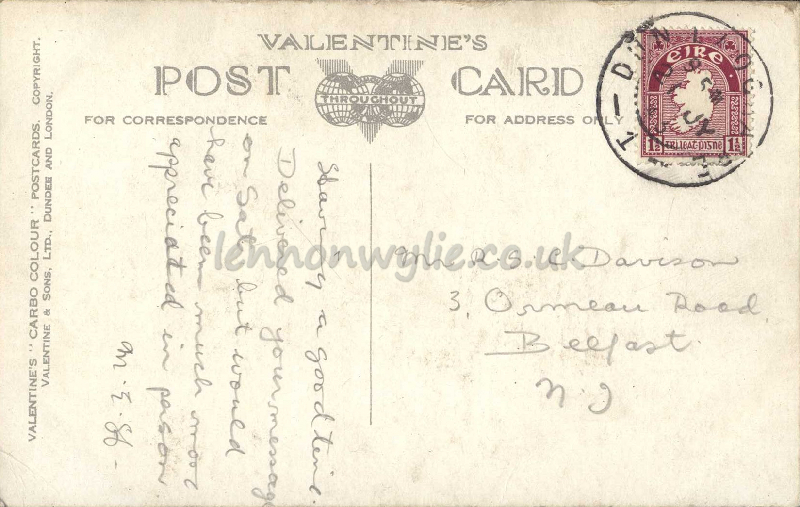 VALENTINE'S
POST CARD
THROUGHOUT
FOR CORRESPONDENCE
FOR ADDRESS ONLY
VALENTINE'S "CARBO COLOUR" POSTCARDS. COPYRIGHT.
VALENTINE & SONS, LTD., DUNDEE AND LONDON.
éIRe
1½ 1½
Having a good time.
Delivered your message
on Sat. but would
have been much more
appreciated in person
M. E. H.
Mr R. S. A. Davison
3, Ormeau Road
Belfast
N I
lennonwylie.co.uk